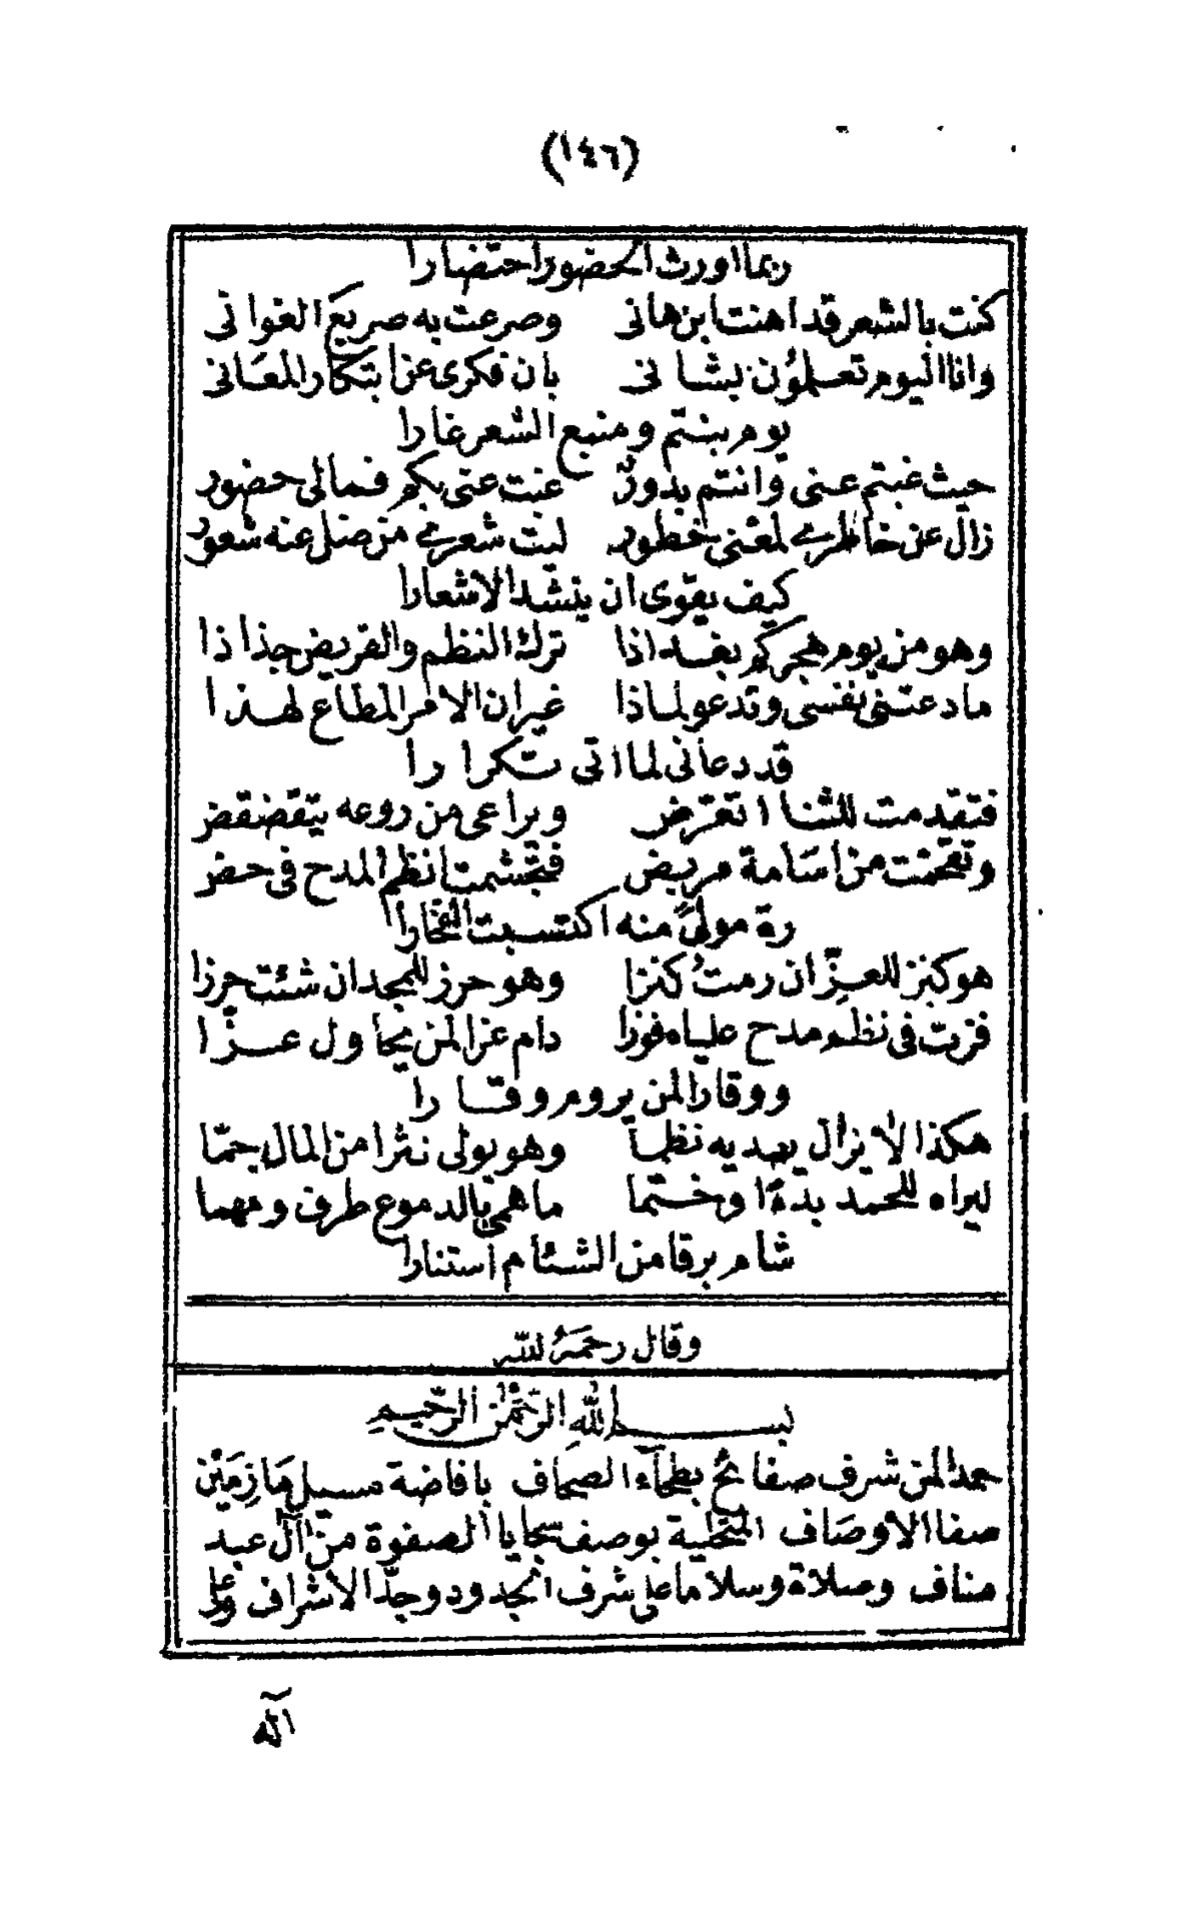 (١٤٦)
ربما اورث الحضور احتضارا
كنت بالشعر قد اهنت ابن هانى وصرعت به صريع الغوانى
وانا اليوم تعلمون بشانى بان فكرى عن ابتكار المعانى
يوم بنتم ومنبع الشعر غارا
حيث غبتم عنى وانتم بدور غبت عنى بكم فمالى حضور
زال عن خاطرى لمعنى خطور ليت شعرى من ضل عنه شعور
كيف يقوى ان ينشد الاشعارا
وهو من يوم هجركم بغداذا ترك النظم والقريض جذاذا
ما دعتنى نفسى وتدعو لماذا غير ان الامر المطاع لهذا
قد دعانى لما اتى تكرارا
فتقدمت للثنا اتعرض ويراعى من روعه يتقضقض
وتقحمت من اسامة مربض فتجشمت انظم المدح فى حضر
رة مولىً منه اكتسبت الفخارا
هو كنز للعزّ ان رمت كنزا وهو حرز للمجد ان شئت حرزا
فزت فى نظم مدح علياه فوزا دام عزا لمن يحاول عــزّا
ووقارا لمن يروم وقــارا
هكذا لا نزال يهديه نظما وهو يولى نثرا من المال جمّا
ليراه للحمد بدءًا وختما ما همى بالدموع طرف ومهما
شام برقا من الشئام استنارا
وقال رحمه الله
بســـم الله الرحمٰن الرحيم
حمدا لمن شرف صفائح بطحآء الصحاف بافاضة مسيل مازمين
صفا الاوصاف المتحلية بوصف سجايا الصفوة من آل عبد
مناف وصلاة وسلاما على شرف الجدود وجدّ الاشراف وعلى
آله